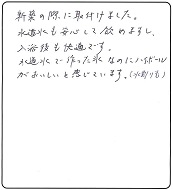 新築の際に取付けました。
水道水も安心して飲めますし、
入浴後も快適です。
水道水で作った氷なのにハイボール
がおいしいと感じています。(水割りも)